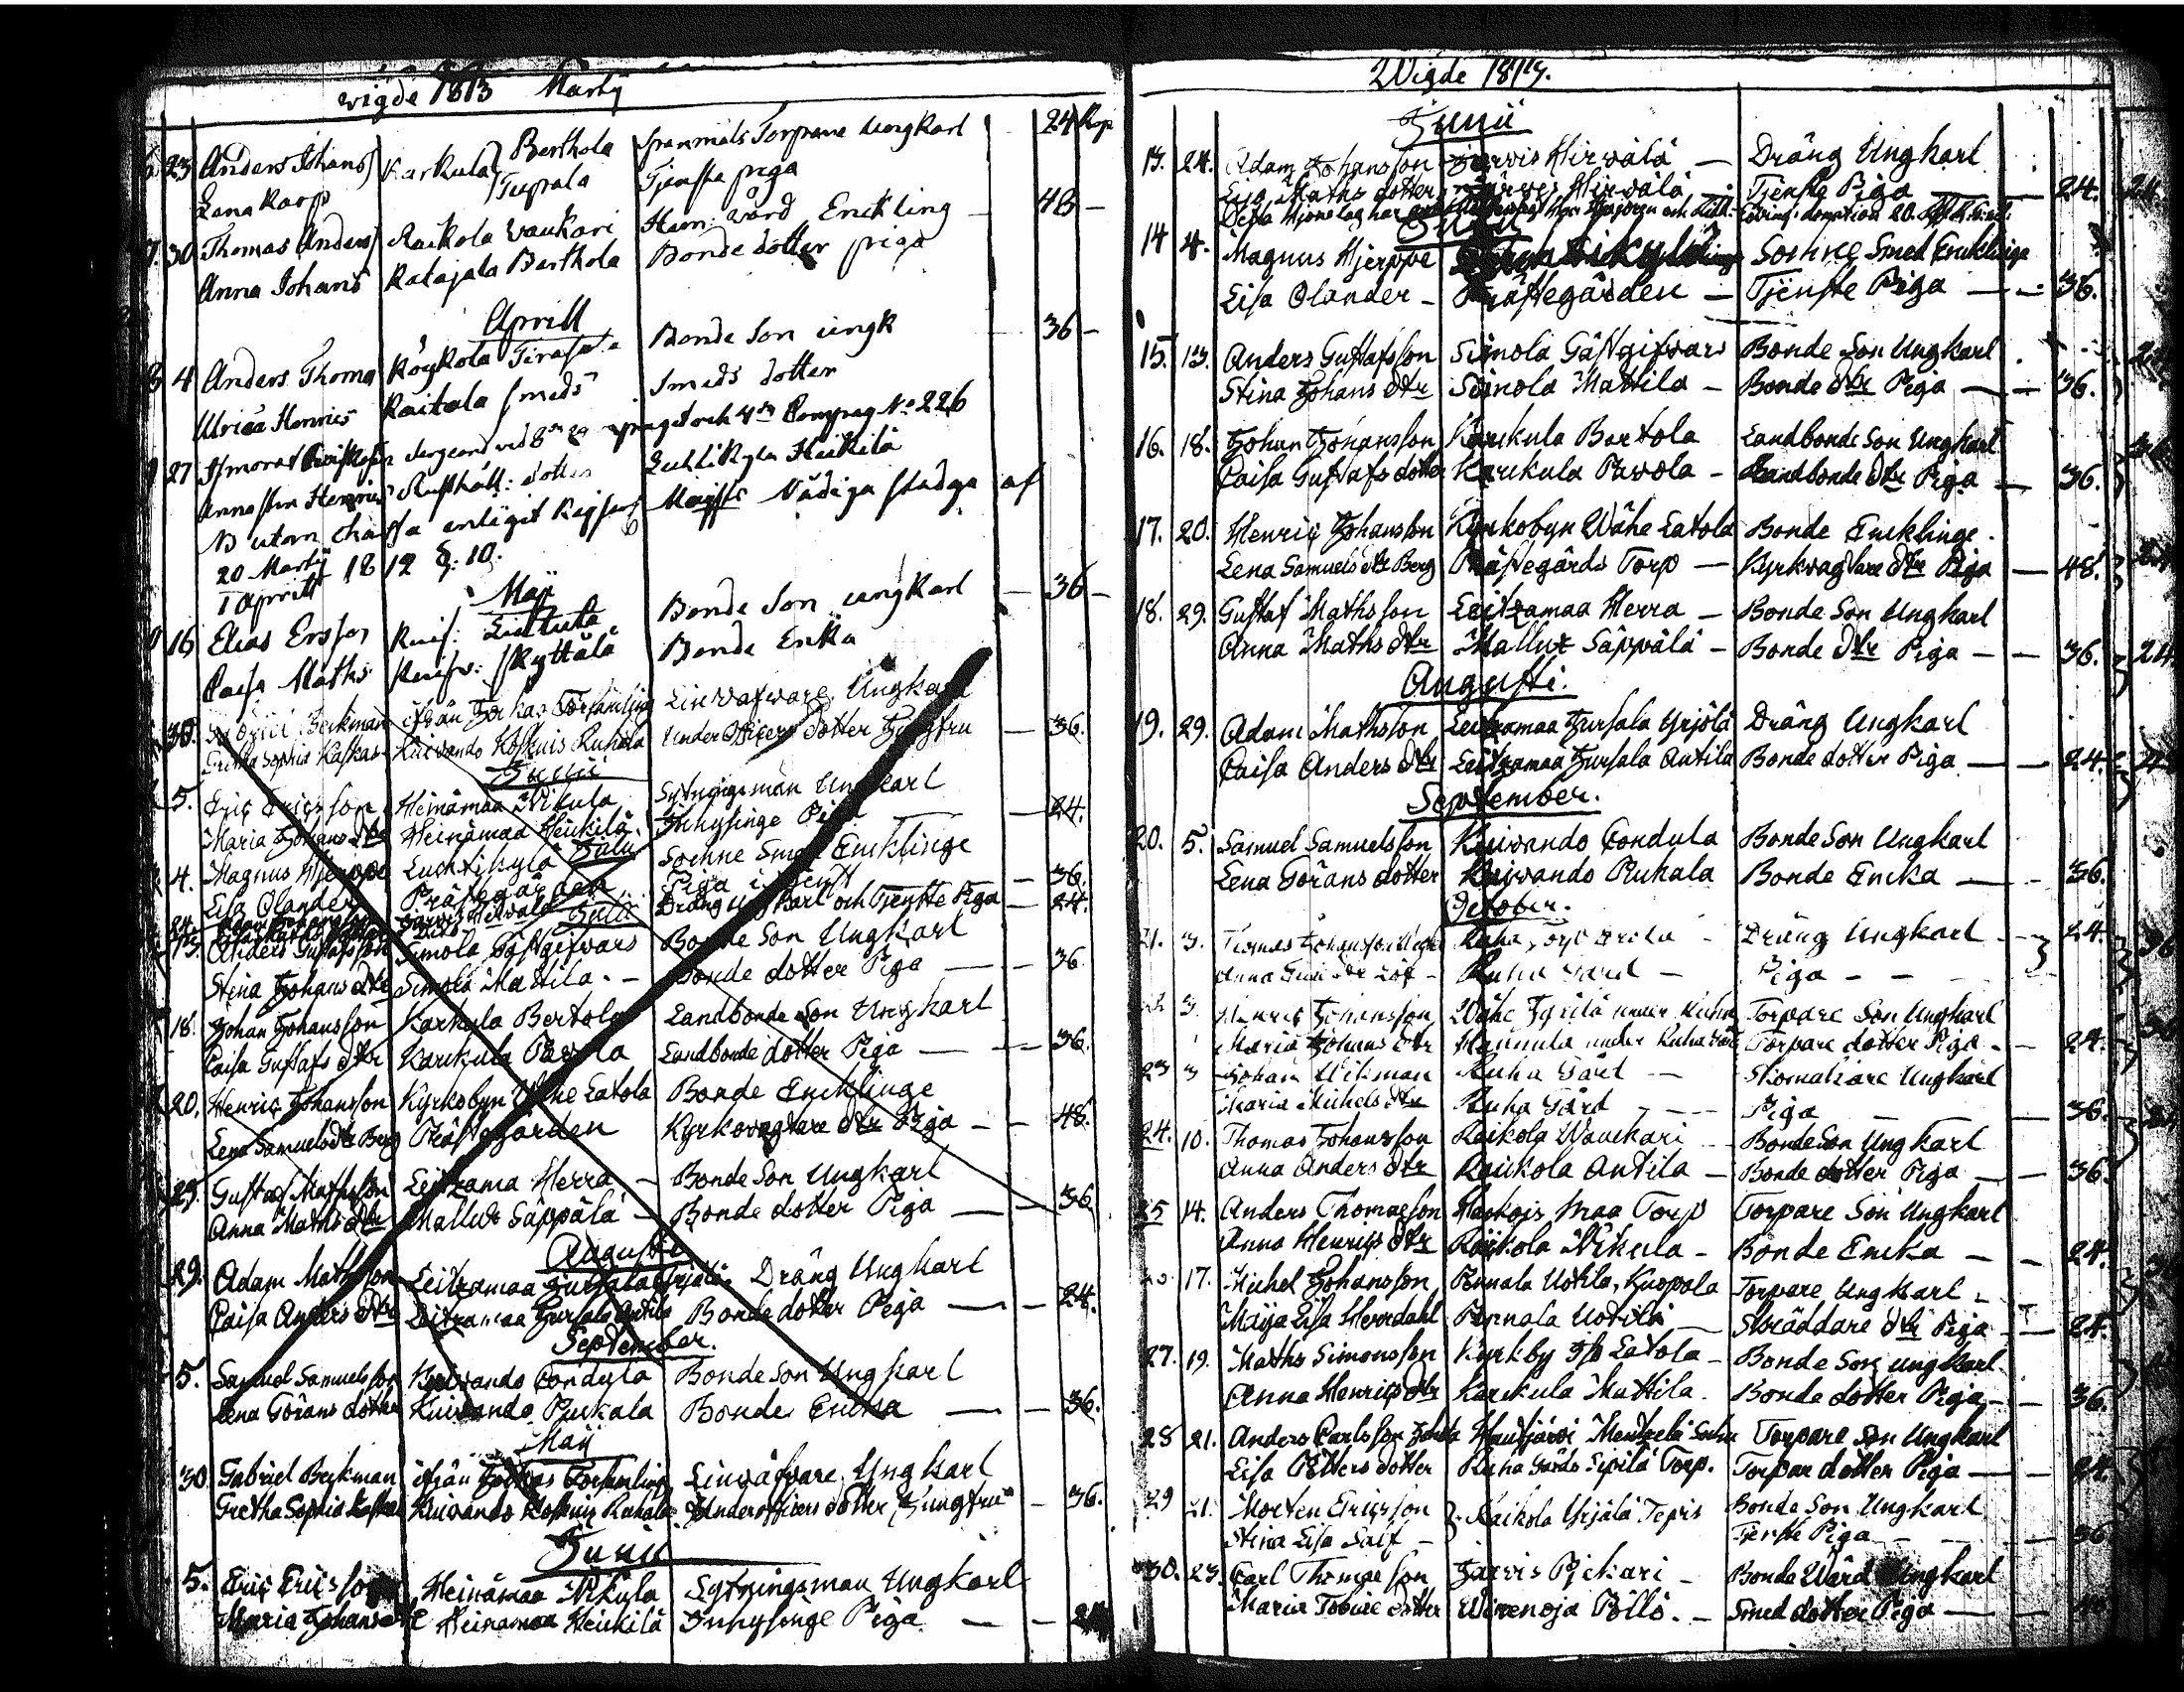 vigde 1813 Martij
24 Kop
23 Anders Johans Karkula Berthola Spanmåls Torpare ungkarl
Lena Karp Tupala Tjensta piga
30 Thomas Anders Raikola Vaukari Hem: värd Enckling 48 -
Anna Johans Ratajala Barthola Bonde dotter piga
Aprill
4 Anders Thoma Köykola Bonde Son ungk 36 -
Ulrica Henrics Raitala Smeds Smeds dotter
27 Sergeant ved No 226
Anna Stin Henrics dotter Luhtikylä Heikilä
NB utom enligit Nådiga Stadga af
20 Martij 1812 §. 10.
1 Aprill
Maij
16 Elias Ersson Kuif: Bonde Son ungkarl 36 -
Caisa Maths Kuifv: Skyttälä Bonde Enka
30. Gabriel Beckman ifrån Församling Linväfvare Ungkarl
Gretha Sophia Kaskas Kuivando Koskuis Ruhala Under Officers dotter Jungfru - 36.
Junii
5. Eric Ericsson Heinämaa Nikula Sytningsman Ungkarl
Maria Johans dtr Heinämaa Heickilä Inhysinge Piga 24.
Julii
4. Magnus Hjerppe Luchtikylä Sochne Smed Encklinge
Lisa Olander Prästegården Piga i tjenst - 36.
24. Adam Johansson Järvis Hirvälä Dräng Ungkarl och Tjenste Piga - 24.
Julii
13. Anders Gustafsson Simola Gästgifvars Bonde Son Ungkarl
Stina Johans dtr Simola Mattila - Bonde dotter Piga - 36.
18. Johan Johansson Karkula Bertola Landbonde Son Ungkarl
Caisa Gustafs dtr Karckula Pavola Landbonde dotter Piga - 36.
20. Henric Johansson Kyrkobyn Wähe Latola Bonde Encklinge
Lena Samuels dtr Berg Prästegården Kyrkovagtare dtr Piga - 48.
29. Gustaf Mathsson Leitzama Herra - Bonde Son Ungkarl
Anna Maths dtr Mallux Säppälä - Bonde dotter Piga - 36
Augusti
29. Adam Mathsson Leitzamaa Jursala Yrjölä Dräng Ungkarl
Caisa Anders dtr Leitzamaa Jursala Antila Bonde dotter Piga - 24.
September.
5. Samuel Samuelsson Kuivando Condula Bonde Son Ungkarl
Lena Görans dotter Kuivando Ruhala Bonde Encka - 36.
Maij
30 Gabriel Beckman ifrån Församling Linväfvare Ungkarl
Gretha Sophia Kaskas Kuivando Koskuis Ruhala Underofficers dotter Jungfru - 36.
Junii
5. Eric Ericsson Heinämaa Nikula Sytningsman Ungkarl
Maria Johans dtr Heinämaa Heickilä Inhysinge Piga - 24
Wigde 1813.
Junii
13. 24. Adam Johansson Järvis Hirvälä - Dräng Ungkarl
Lisa Maths dotter Järvis Hirvälä - Tjenste Piga - 24.
Detta Hjonelag har
Julii
14 4. Magnus Hjerppe Sochne Smed Encklinge
Lisa Olander - Prästegården - Tjenste Piga - 36.
15. 13. Anders Gustafsson Simola Gästgifvars Bonde Son Ungkarl
Stina Johans dtr Simola Mattila - Bonde dtr Piga - 36.
16. 18. Johan Johansson Karckula Bertola Landbonde Son Ungkarl
Caisa Gustafs dotter Karckula Pavola - Landbonde dtr Piga - 36.
17. 20. Henric Johansson Kyrkobyn Wähe Latola Bonde Encklinge.
Lena Samuels dtr Berg Prästegårds Torp - Kyrkvagtare dtr Piga - 48.
18. 29. Gustaf Mathsson Leitzamaa Herra - Bonde Son Ungkarl
Anna Maths dtr Mallux Säppälä - Bonde dtr Piga - 36.
Augusti.
19. 29. Adam Mathsson Leitzamaa Jursala Yrjölä Dräng Ungkarl
Caisa Anders dtr Leitzamaa Jursala Antila Bonde dotter Piga - 24.
September.
20. 5. Samuel Samuelsson Kuivando Condula Bonde Son Ungkarl
Lena Görans dotter Kuivando Ruhala Bonde Encka - 36.
October.
21. 3. Thomas Johansson Dräng Ungkarl - 24.
Anna Löf - Ruha Gård - Piga -
22 3. Henric Johansson Wähe Jyrilä under Torpare Son Ungkarl
Maria Johans dtr Mannula under Ruha Gård Torpare dotter Piga - 24.
23 3 Johan Wikman Ruha Gård - Skomakare Ungkarl
Maria Michels dtr Ruha Gård - Piga - 36.
24. 10. Thomas Johansson Raikola Wauckari - Bonde Son Ungkarl
Anna Anders dtr Raickola Antila - Bonde dotter Piga - 36.
25 14. Anders Thomaeson Maa Torp Torpare Son Ungkarl
Anna Henrics dtr Raikola Nikula - Bonde Encka - 24.
26. 17. Michel Johansson Pennala Uotila, Kuopola Torpare Ungkarl -
Maija Lisa Herrdahl Pennala Uotila - Skräddare dtr Piga - 24.
27. 19. Maths Simonsson Kyrkby Latola - Bonde Son Ungkarl
Anna Henrics dtr Karckula Mattila. Bonde dotter Piga - 36.
28 21. Anders Carlsson Hautjärvi Mentzelä Torpare Son Ungkarl
Lisa Petters dotter Ruha Gårds Sipilä Torp. Torpar dotter Piga - 24.
29 21. Morten Ericsson Raikola Yrjälä Bonde Son Ungkarl
Stina Lisa - Tjenste Piga - 36
30. 23. Carl Thomaeson Järvis Pickari - Bonde Wärd Ungkarl
Maria dotter Wirenoja Pöllö. - Smed dotter Piga -